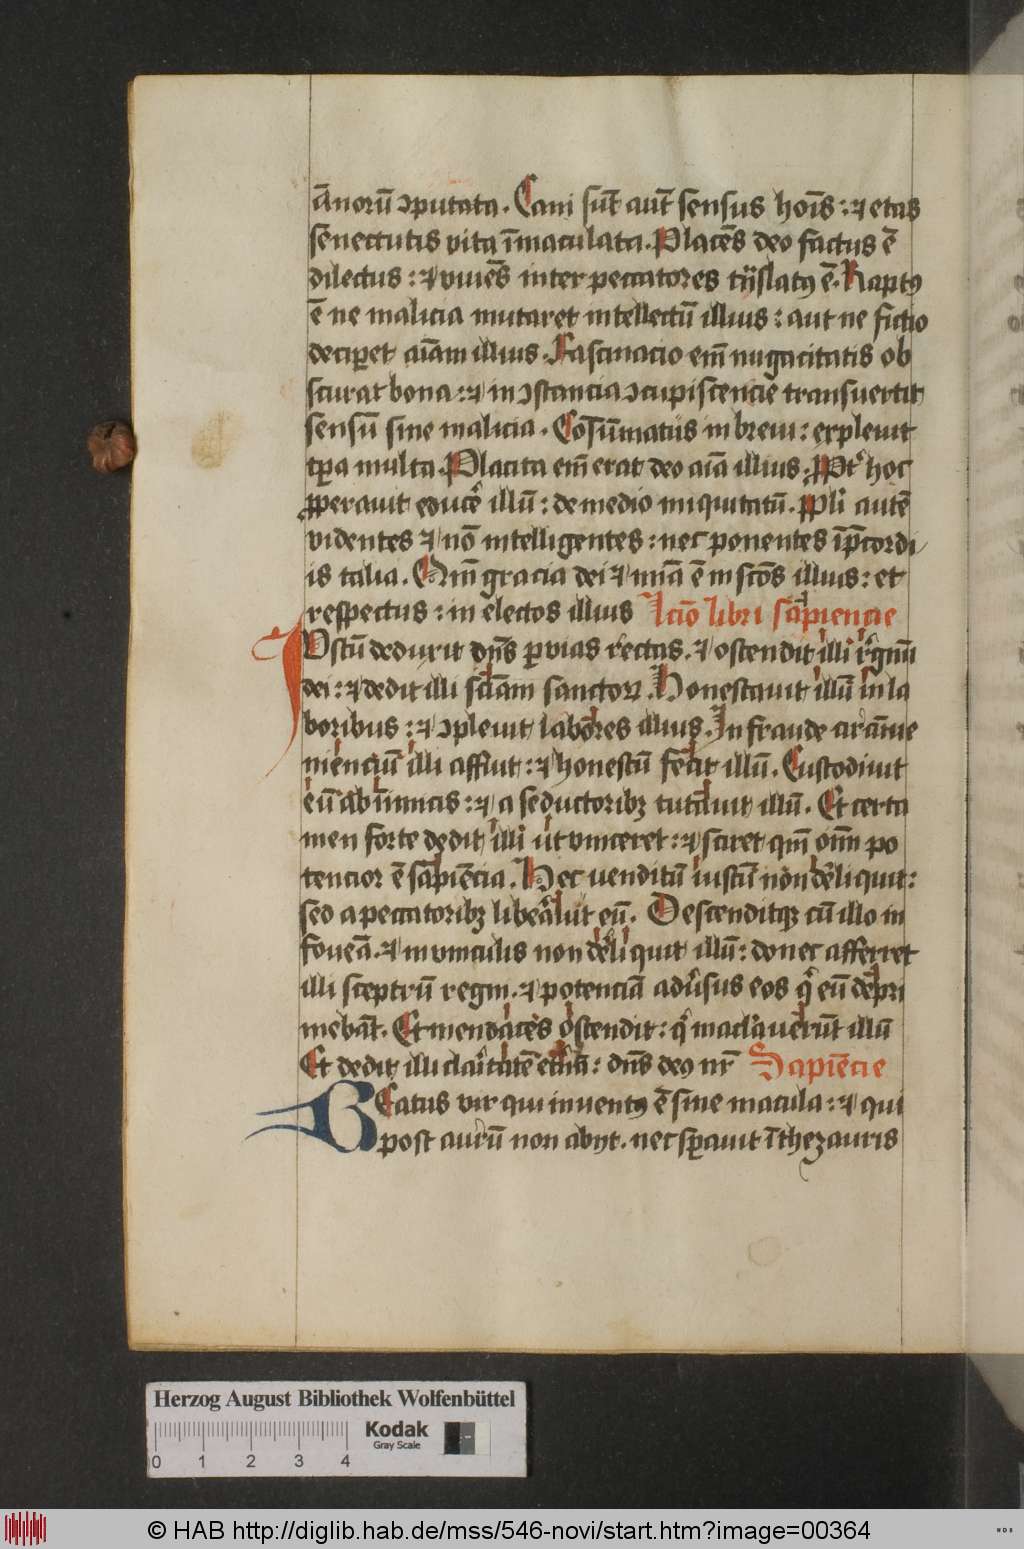 a̅noru̅ ɔputata. Cani su̅t aut̅ sensus ho̅is : ⁊ etas
senectutis vita i̅maculata. Place̅s deo factus e̅
dilectus : ⁊ viue̅s inter peccatores t̅nslatꝰ e̅. Raptꝰ
e̅ ne malicia mutaret intellectu̅ illius : aut ne fictio
decip̅et ai̅am illius. Fascinacio em̅ nugacitatis ob
scurat bona : ⁊ inɔstancia ɔcupiscencie transuertit
sensu̅ sine malicia. Co̅su̅matus in breui : expleuit
tp̅a multa. Placita em̅ erat deo ai̅a illius. Ꝓpt̉ hoc
ꝓperauit educẻ illu̅ : de medio iniquitatu̅. Ppl̅i aute̅
videntes ⁊ no̅ intelligentes : nec ponentes i̅ p̅cordi
is talia. Qm̅ gracia dei ⁊ mi̅a e̅ in sc̅os illius : et
respectus : in electos illius l̅cio libri sapiencie
Iustu̅ deduxit dn̅s ꝑ vias rectas. ⁊ ostendit illi r̉gnu̅
dei : ⁊ dedit illi sci̅am sanctoꝝ. Honestauit illu̅ in la
boribus : ⁊ ɔpleuit labores illius. In fraude circu̅ue
niencium̅ illi affuit : ⁊ honestu̅ fecit illu̅. Custodiuit
eu̅ ab inimicis : ⁊ a seductoribꝫ tutauit illu̅. Et certa
men forte dedit illi ut vinceret : ⁊ sciret qm̅ om̅i po
tencior e̅ sapie̅cia. Hec venditu̅ iustu̅ non dereliquit :
sed a peccatoribꝫ liberauit eu̅. Descenditqꝫ cu̅ illo in
fouea̅. ⁊ in vinculis non dereliquit illu̅ : donec afferret
illi sceptru̅ regni. ⁊ potencia̅ adủsus eos q̉ eu̅ depri
meba̅t. Et mendaces ostendit : q̉ maclaueru̅t illu̅
Et dedit illi claritate̅ et̉na̅ : dn̅s deꝰ nr̅ Sapie̅cie
BEatus vir qui inuentꝰ e̅ sine macula : ⁊ qui
post auru̅ non abijt. nec sp̅auit i̅ thezauris
Herzog August Bibliothek Wolfenbüttel
Kodak
Gray Scale
0 1 2 3 4
© HAB http://diglib.hab.de/mss/546-novi/start.htm?image=00364